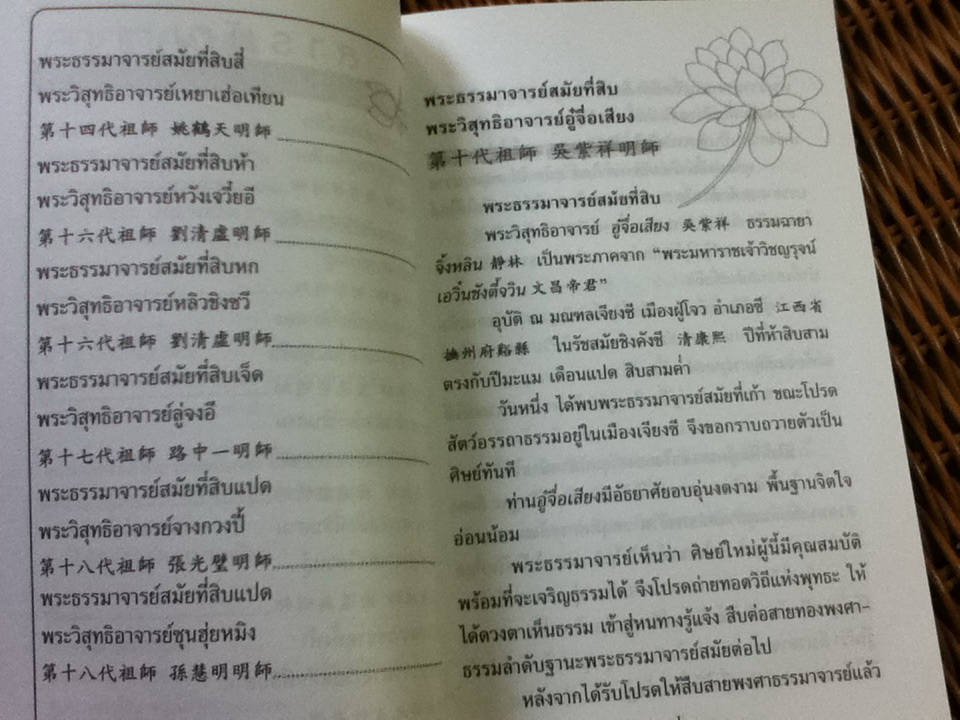 พระธรรมาจารย์สมัยที่สิบสี่
พระวิสุทธิอาจารย์เหยาเฮ่อเทียน
第十四代祖師 姚鶴天明師
พระธรรมาจารย์สมัยที่สิบห้า
พระวิสุทธิอาจารย์หวังเจวี๋ยอี
第十六代祖師 劉清虛明師
พระธรรมาจารย์สมัยที่สิบหก
พระวิสุทธิอาจารย์หลิวชิงซวี
第十六代祖師 劉清虛明師
พระธรรมาจารย์สมัยที่สิบเจ็ด
พระวิสุทธิอาจารย์ลู่จงอี
第十七代祖師 路中一明師
พระธรรมาจารย์สมัยที่สิบแปด
พระวิสุทธิอาจารย์จางกวงปี้
第十八代祖師 張光璧明師
พระธรรมาจารย์สมัยที่สิบแปด
พระวิสุทธิอาจารย์ซุนฮุ่ยหมิง
第十八代祖師 孫慧明明師
พระธรรมาจารย์สมัยที่สิบ
พระวิสุทธิอาจารย์อู๋จื่อเสียง
第十代祖師 吳紫祥明師
พระธรรมาจารย์สมัยที่สิบ
พระวิสุทธิอาจารย์ อู๋จื่อเสียง 吳紫祥 ธรรมฉายา
จิ้งหลิน 靜林 เป็นพระภาคจาก “พระมหาราชเจ้าวิชญรุจน์
เอวิ๋นชังตี้จวิน 文昌帝君”
อุบัติ ณ มณฑลเจียงซี เมืองฝู่โจว อำเภอซี 江西省
撫州府谿縣 ในรัชสมัยชิงคังซี 清康熙 ปีที่ห้าสิบสาม
ตรงกับปีมะแม เดือนแปด สิบสามค่ำ
วันหนึ่ง ได้พบพระธรรมาจารย์สมัยที่เก้า ขณะโปรด
สัตว์อรรถาธรรมอยู่ในเมืองเจียงซี จึงขอกราบถวายตัวเป็น
ศิษย์ทันที
ท่านอู๋จื่อเสียงมีอัธยาศัยอบอุ่นงดงาม พื้นฐานจิตใจ
อ่อนน้อม
พระธรรมาจารย์เห็นว่า ศิษย์ใหม่ผู้นี้มีคุณสมบัติ
พร้อมที่จะเจริญธรรมได้ จึงโปรดถ่ายทอดวิถีแห่งพุทธะ ให้
ได้ดวงตาเห็นธรรม เข้าสู่หนทางรู้แจ้ง สืบต่อสายทองพงศา-
ธรรมลำดับฐานะพระธรรมาจารย์สมัยต่อไป
หลังจากได้รับโปรดให้สืบสายพงศาธรรมาจารย์แล้ว